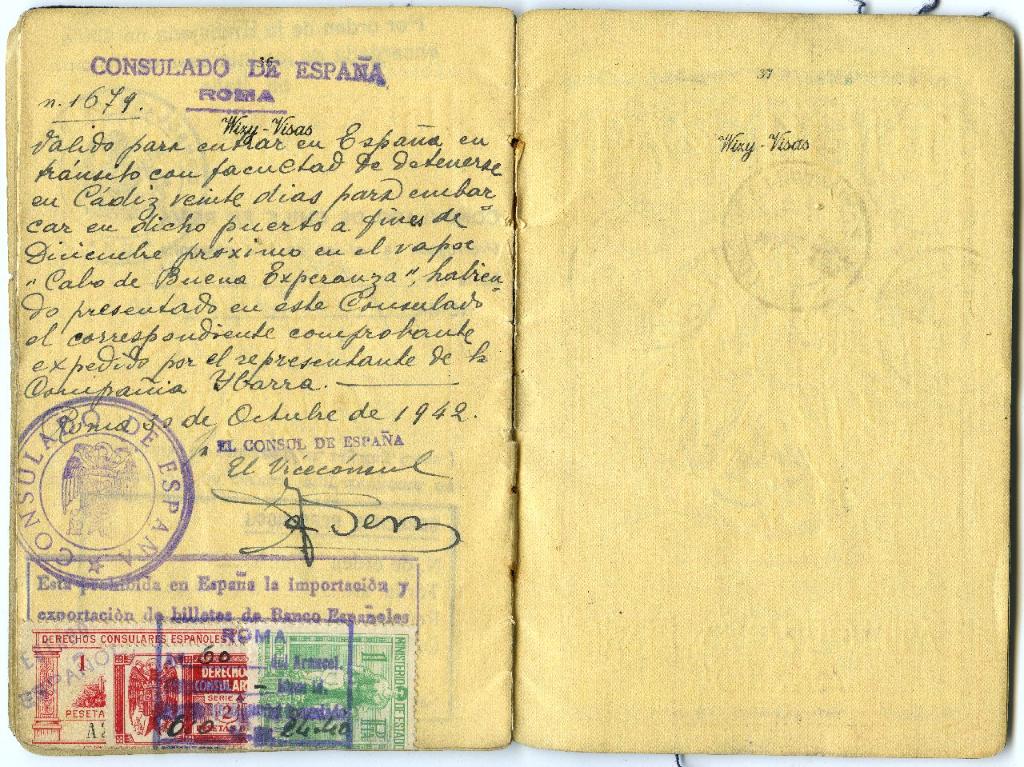 CONSULADO DE ESPAÑA
36
ROMA
n. 1679.
Wizy-Visas
Valido para entrar en España en
tránsito con facultad de detenerse
en Cádiz veinte dias para embar
car en dicho puerto a fines de
Diciembre próximo en el vapor
"Cabo de Buena Esperanza", habien-
do presentado en este Consulado
el correspondiente comprobante
expedido por el representante de la
Compañia Ybarra.
Roma 30 de Octubre de 1942.
EL CONSUL DE ESPAÑA
El Vicecónsul
CONSULADO DE ESPAÑA
Esta prohibida en España la importación y
exportación de billetes de Banco Españoles
DERECHOS CONSULARES ESPAÑOLES
1
PESETA
DERECHO
CONSULAR
SERIE
2
MINISTERIO DE ESTADO
1
ROMA
60
del Arancel.
37
Wizy-Visas